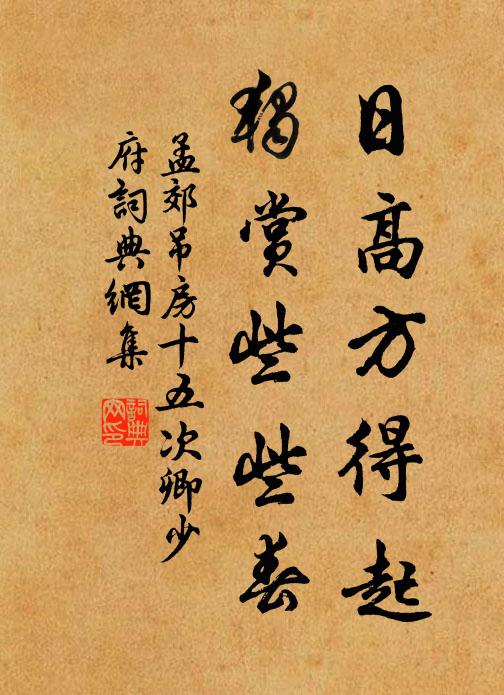 日高方得起
獨賞些些春
孟郊吊房十五次卿少
府詞典網集
詞典
网印